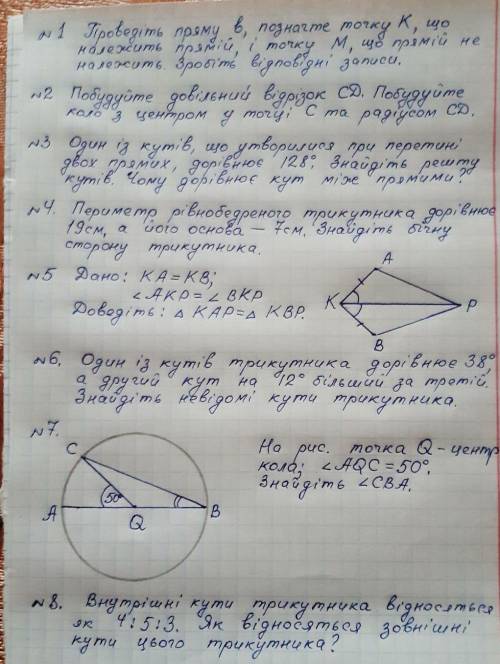 №1 Проведіть пряму в, позначте точку К, що
належить прямій, і точку М, що прямій не
належить. Зробіть відповідні записи.
№2 Побудуйте довільний відрізок СD. Побудуйте
коло з центром у точці С та радіусом СD.
№3 Один із кутів, що утворилися при перетині
двох прямих, дорівнює 128°. Знайдіть решту
кутів. Чому дорівнює кут між прямими?
№4. Периметр рівнобедреного трикутника дорівнює
19см, а його основа – 7см. Знайдіть бічну
сторону трикутника.
№5 Дано: КА=КВ;
∠АКР=∠ВКР
Доведіть: △ КАР=△ КВР.
A
K
P
B
№6. Один із кутів трикутника дорівнює 38°,
а другий кут на 12° більший за третій.
Знайдіть невідомі кути трикутника.
№7.
C
50°
A
Q
B
На рис. точка Q – центр
кола; ∠AQC=50°.
Знайдіть ∠CBA.
№8. Внутрішні кути трикутника відносяться
як 4:5:3. Як відносяться зовнішні
кути цього трикутника?